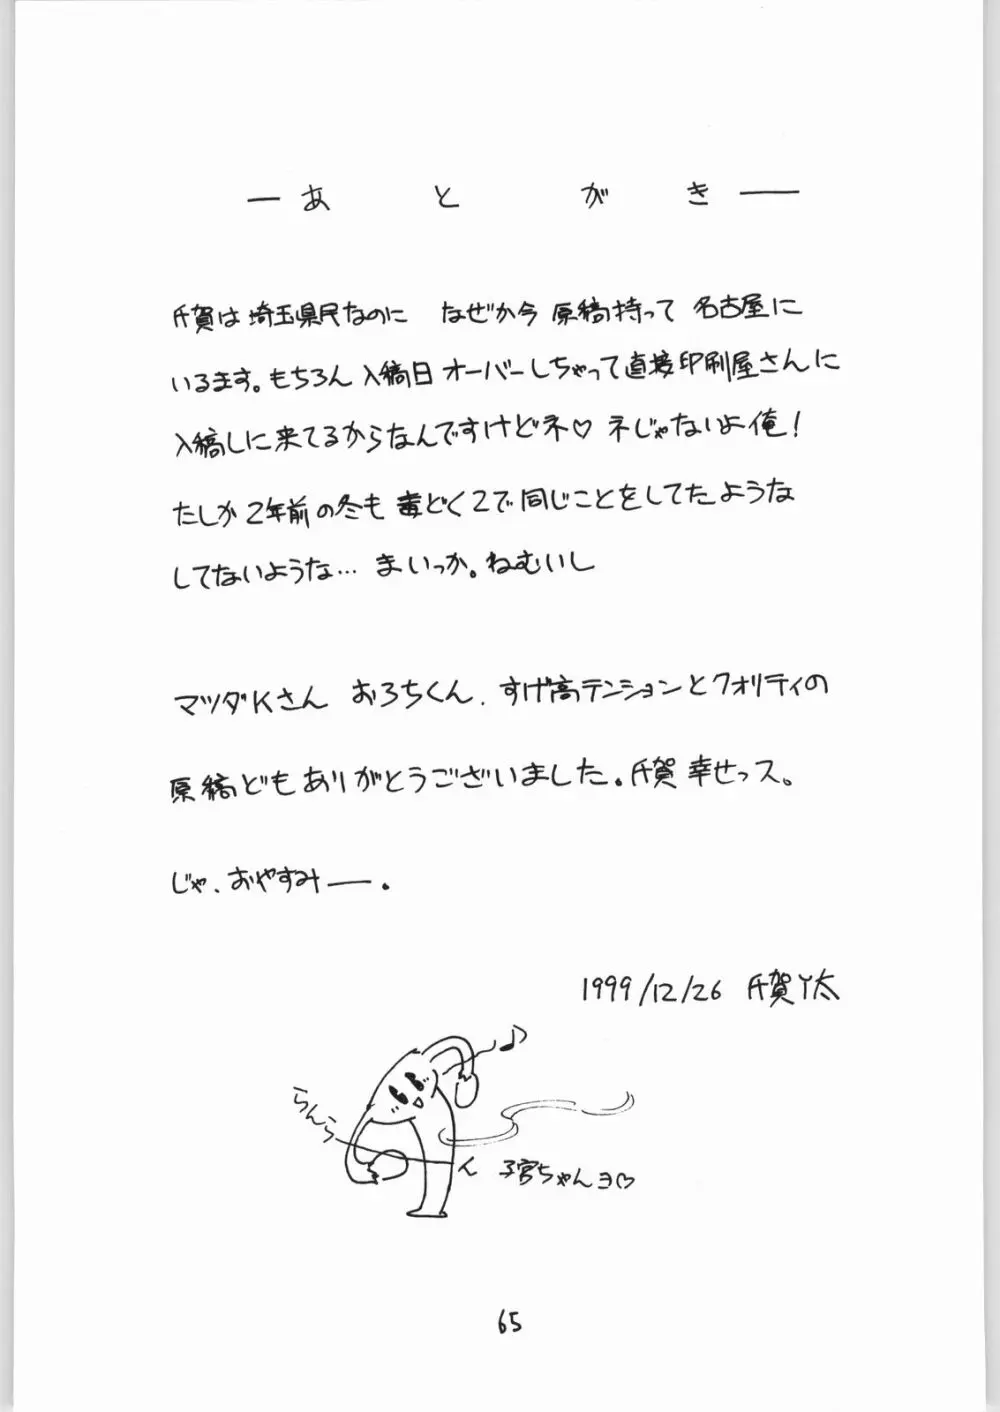 ―あとがき―
千賀は埼玉県民なのに なぜか今 原稿持って 名古屋に
いるます。もちろん 入稿日 オーバーしちゃって直接印刷屋さんに
入稿しに来てるからなんですけどネ♡ ネじゃないよ俺!
たしか2年前の冬も 毒どく2で同じことをしてたような
してないような… まいっか。ねむいし
マツダKさん おろちくん、すげ高テンションとクオリティの
原稿どもありがとうございました。千賀 幸せっス。
じゃ、おやすみ―。
1999/12/26 千賀丫太
♪
らんらん
子宮ちゃんヨ♡
65